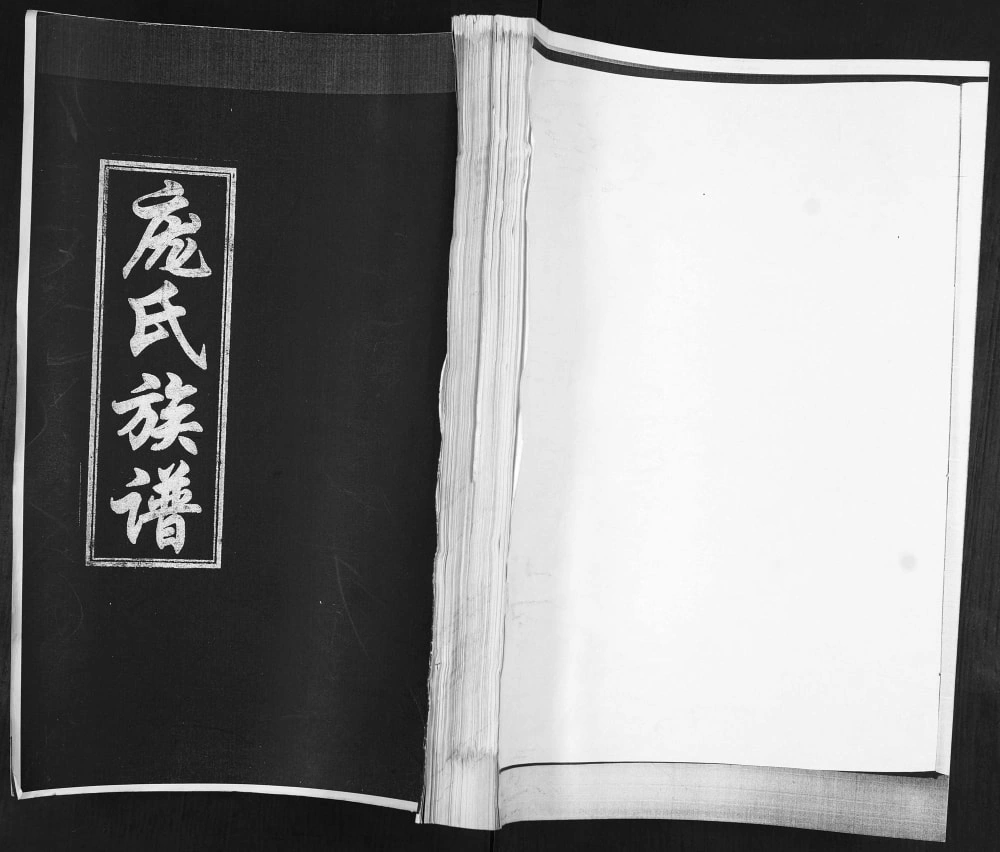 庞氏族谱